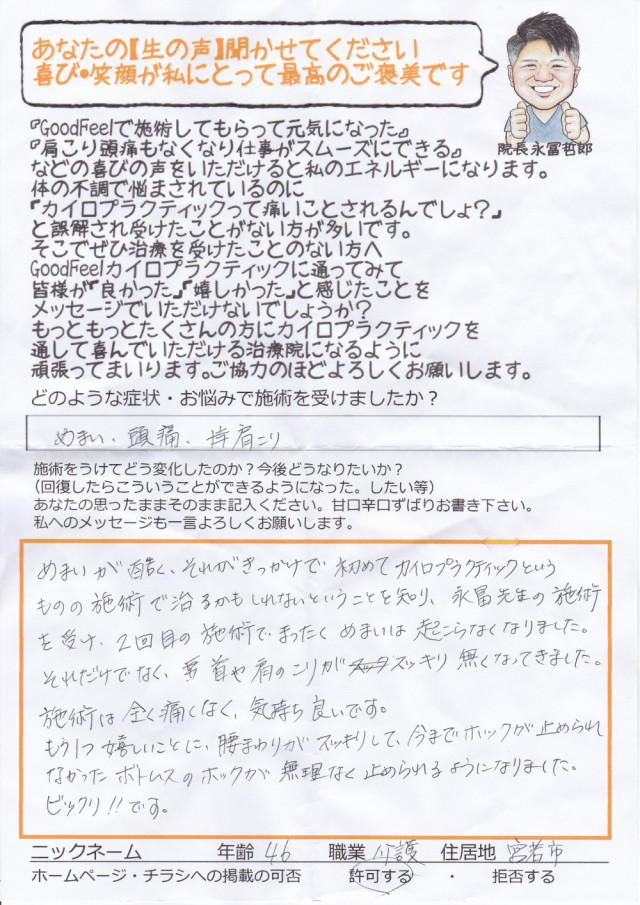 あなたの【生の声】聞かせてください
喜び・笑顔が私にとって最高のご褒美です
院長永冨哲郎
『GoodFeelで施術してもらって元気になった』
『肩こり頭痛もなくなり仕事がスムーズにできる』
などの喜びの声をいただけると私のエネルギーになります。
体の不調で悩まされているのに
「カイロプラクティックって痛いことされるんでしょ?」
と誤解され受けたことがない方が多いです。
そこでぜひ治療を受けたことのない方へ
GoodFeelカイロプラクティックに通ってみて
皆様が「良かった」「嬉しかった」と感じたことを
メッセージでいただけないでしょうか?
もっともっとたくさんの方にカイロプラクティックを
通して喜んでいただける治療院になるように
頑張ってまいります。ご協力のほどよろしくお願いします。
どのような症状・お悩みで施術を受けましたか?
めまい、頭痛、 肩こり
施術をうけてどう変化したのか?今後どうなりたいか?
(回復したらこういうことができるようになった。したい等)
あなたの思ったままそのまま記入ください。甘口辛口ずばりお書き下さい。
私へのメッセージも一言よろしくお願いします。
めまいが酷く、それがきっかけで初めてカイロプラクティックという
ものの施術で治るかもしれないということを知り、永冨先生の施術
を受け、2回目の施術でまったくめまいは起こらなくなりました。
それだけでなく、首や肩のこりがスッキリ無くなってきました。
施術は全く痛くなく、気持ち良いです。
もう1つ嬉しいことに、腰まわりがスッキリして、今までホックが止められ
なかったボトムスのホックが無理なく止められるようになりました。
ビックリ!!です。
ニックネーム 年齢 46 職業 介護 住居地 宮若市
ホームページ・チラシへの掲載の可否 許可する ・ 拒否する